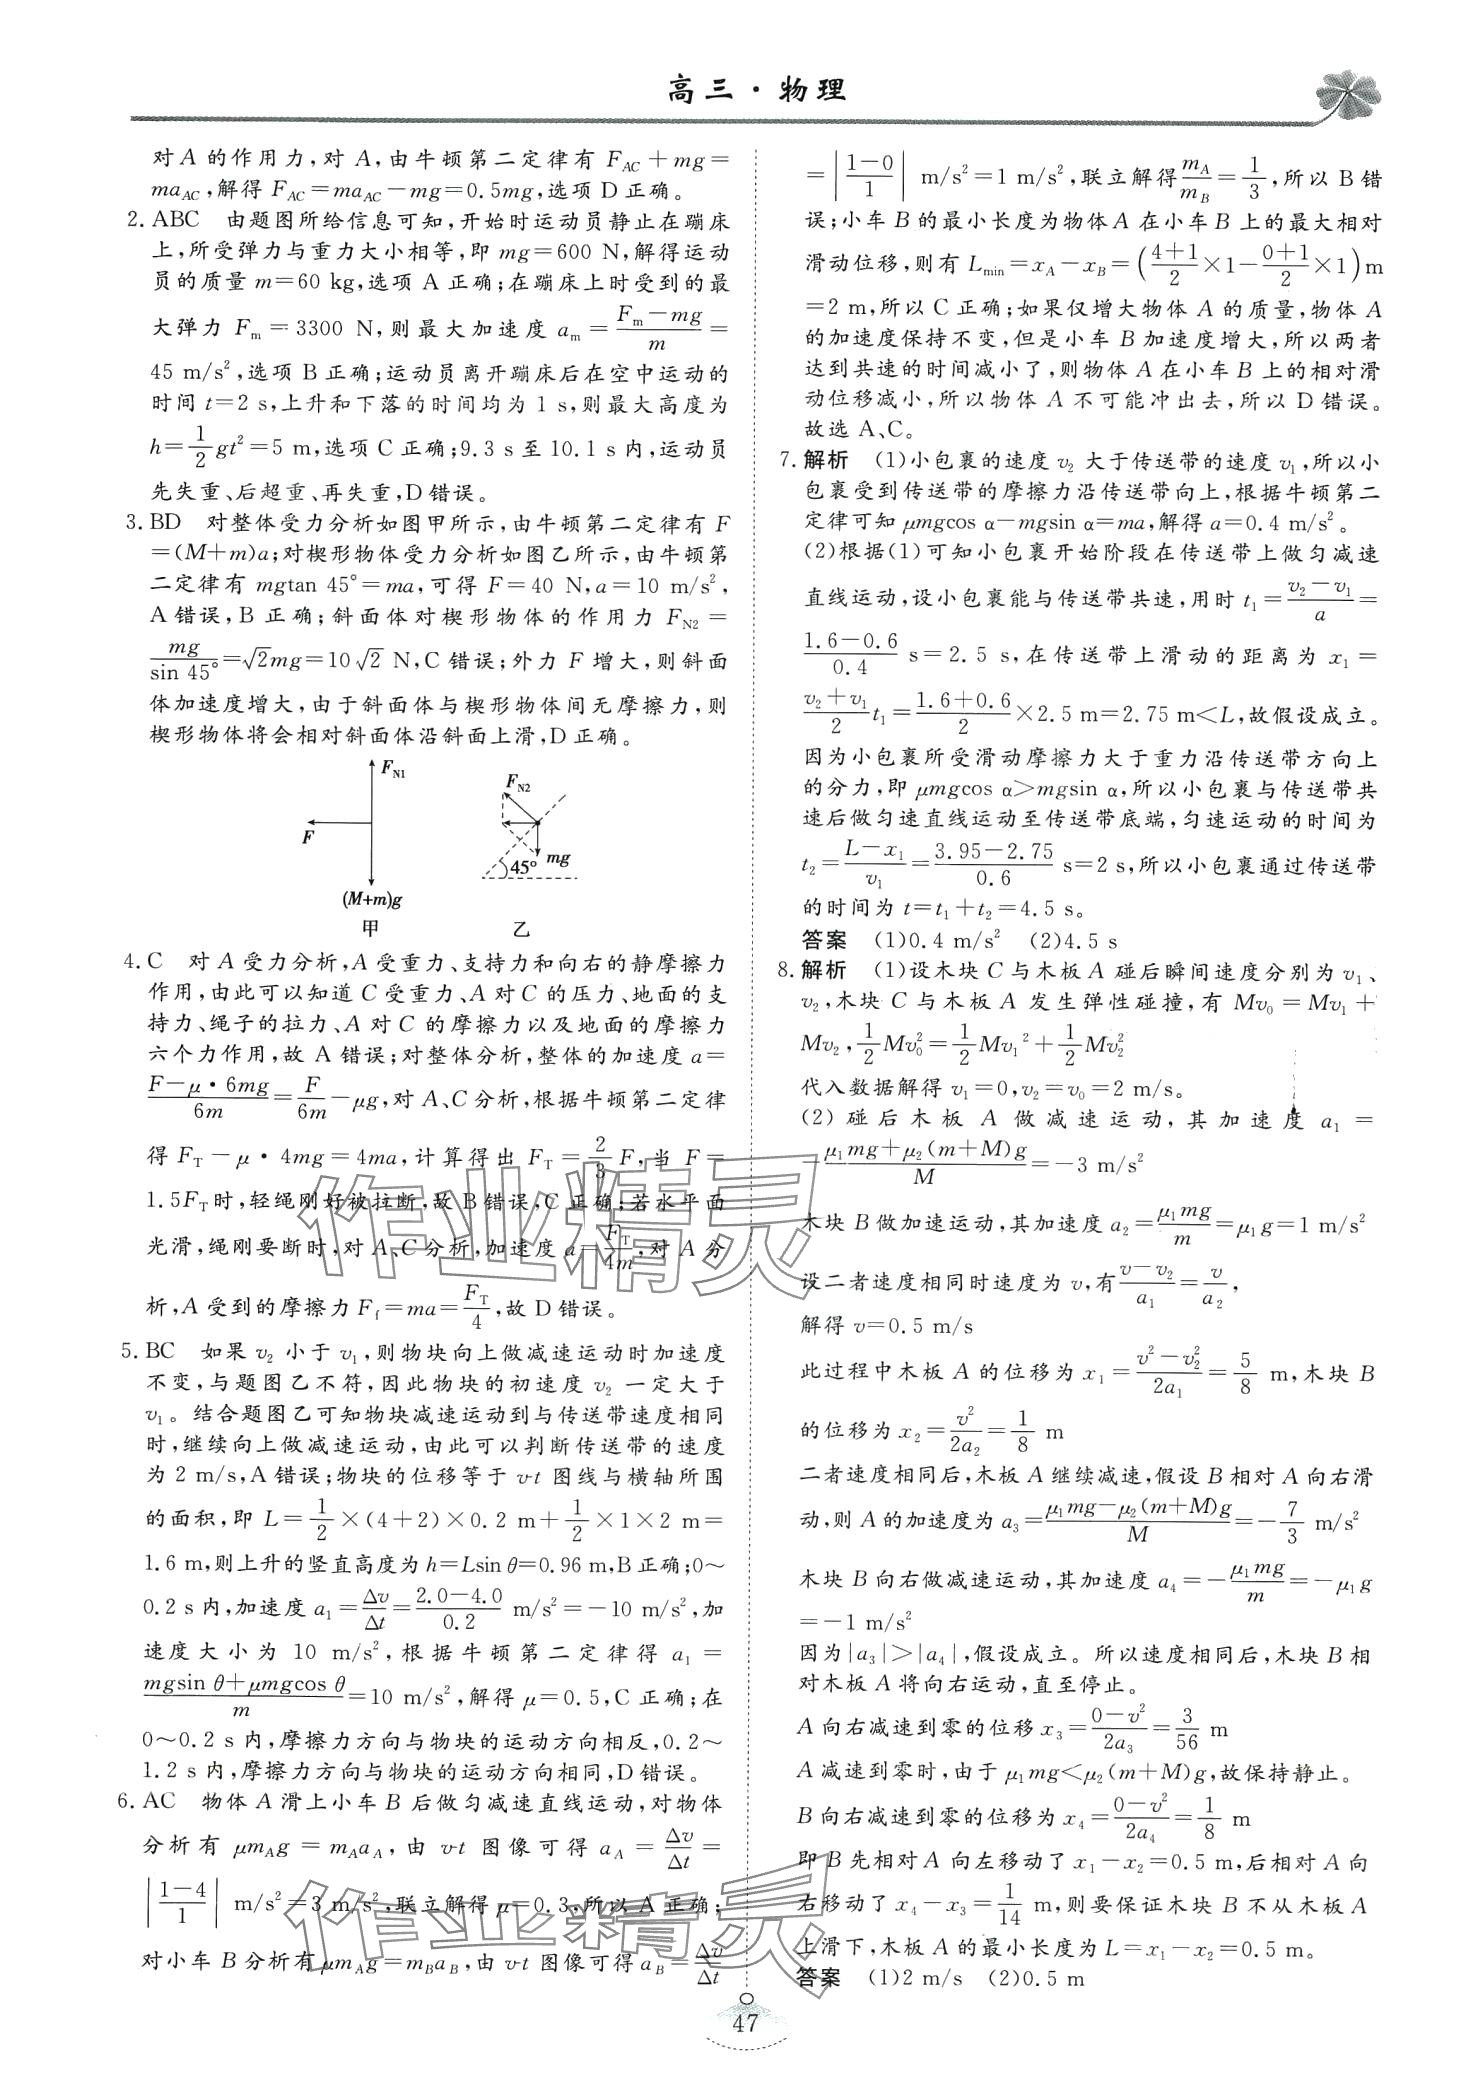 高三·物理
对 A 的作用力,对 A,由牛顿第二定律有 F_AC+mg=
ma_AC,解得 F_AC=ma_AC-mg=0.5mg,选项 D 正确。
2. ABC 由题图所给信息可知,开始时运动员静止在蹦床
上,所受弹力与重力大小相等,即 mg=600 N,解得运动
员的质量 m=60 kg,选项 A 正确;在蹦床上时受到的最
大弹力 F_m=3300 N,则最大加速度 a_m=(F_m-mg)/m=
45 m/s²,选项 B 正确;运动员离开蹦床后在空中运动的
时间 t=2 s,上升和下落的时间均为 1 s,则最大高度为
h=1/2 gt²=5 m,选项 C 正确;9.3 s 至 10.1 s 内,运动员
先失重、后超重、再失重,D 错误。
3. BD 对整体受力分析如图甲所示,由牛顿第二定律有 F
=(M+m)a;对楔形物体受力分析如图乙所示,由牛顿第
二定律有 mgtan 45°=ma,可得 F=40 N,a=10 m/s²,
A 错误,B 正确;斜面体对楔形物体的作用力 F_N2=
mg/sin 45°=√2mg=10√2 N,C 错误;外力 F 增大,则斜面
体加速度增大,由于斜面体与楔形物体间无摩擦力,则
楔形物体将会相对斜面体沿斜面上滑,D 正确。
F_N1
F
(M+m)g
甲
F_N2
mg
45°
乙
4. C 对 A 受力分析,A 受重力、支持力和向右的静摩擦力
作用,由此可以知道 C 受重力、A 对 C 的压力、地面的支
持力、绳子的拉力、A 对 C 的摩擦力以及地面的摩擦力
六个力作用,故 A 错误;对整体分析,整体的加速度 a=
(F-μ·6mg)/6m=F/6m-μg,对 A、C 分析,根据牛顿第二定律
得 F_T-μ·4mg=4ma,计算得出 F_T=2/3 F,当 F=
1.5F_T时,轻绳刚好被拉断,故 B 错误,C 正确;若水平面
光滑,绳刚要断时,对 A、C 分析,加速度 a=F_T/4m,对 A 分
析,A 受到的摩擦力 F_f=ma=F_T/4,故 D 错误。
5. BC 如果 v₂ 小于 v₁,则物块向上做减速运动时加速度
不变,与题图乙不符,因此物块的初速度 v₂ 一定大于
v₁。结合题图乙可知物块减速运动到与传送带速度相同
时,继续向上做减速运动,由此可以判断传送带的速度
为 2 m/s,A 错误;物块的位移等于 v-t 图线与横轴所围
的面积,即 L=1/2×(4+2)×0.2 m+1/2×1×2 m=
1.6 m,则上升的竖直高度为 h=Lsin θ=0.96 m,B 正确;0~
0.2 s 内,加速度 a₁=Δv/Δt=(2.0-4.0)/0.2 m/s²=-10 m/s²,加
速度大小为 10 m/s²,根据牛顿第二定律得 a₁=
(mgsin θ+μmgcos θ)/m=10 m/s²,解得 μ=0.5,C 正确;在
0~0.2 s 内,摩擦力方向与物块的运动方向相反,0.2~
1.2 s 内,摩擦力方向与物块的运动方向相同,D 错误。
6. AC 物体 A 滑上小车 B 后做匀减速直线运动,对物体
分析有 μm_Ag=m_Aa_A,由 v-t 图像可得 a_A=Δv/Δt=
|(1-4)/1| m/s²=3 m/s²,联立解得 μ=0.3,所以 A 正确;
对小车 B 分析有 μm_Ag=m_Ba_B,由 v-t 图像可得 a_B=Δv/Δt
=|(1-0)/1| m/s²=1 m/s²,联立解得 m_A/m_B=1/3,所以 B 错
误;小车 B 的最小长度为物体 A 在小车 B 上的最大相对
滑动位移,则有 L_min=x_A-x_B=((4+1)/2×1-(0+1)/2×1)m
=2 m,所以 C 正确;如果仅增大物体 A 的质量,物体 A
的加速度保持不变,但是小车 B 加速度增大,所以两者
达到共速的时间减小了,则物体 A 在小车 B 上的相对滑
动位移减小,所以物体 A 不可能冲出去,所以 D 错误。
故选 A、C。
7. 解析 (1)小包裹的速度 v₂ 大于传送带的速度 v₁,所以小
包裹受到传送带的摩擦力沿传送带向上,根据牛顿第二
定律可知 μmgcos α-mgsin α=ma,解得 a=0.4 m/s²。
(2)根据(1)可知小包裹开始阶段在传送带上做匀减速
直线运动,设小包裹能与传送带共速,用时 t₁=(v₂-v₁)/a=
(1.6-0.6)/0.4 s=2.5 s,在传送带上滑动的距离为 x₁=
(v₂+v₁)/2 t₁=(1.6+0.6)/2×2.5 m=2.75 m<L,故假设成立。
因为小包裹所受滑动摩擦力大于重力沿传送带方向上
的分力,即 μmgcos α>mgsin α,所以小包裹与传送带共
速后做匀速直线运动至传送带底端,匀速运动的时间为
t₂=(L-x₁)/v₁=(3.95-2.75)/0.6 s=2 s,所以小包裹通过传送带
的时间为 t=t₁+t₂=4.5 s。
答案 (1)0.4 m/s² (2)4.5 s
8. 解析 (1)设木块 C 与木板 A 碰后瞬间速度分别为 v₁、
v₂,木块 C 与木板 A 发生弹性碰撞,有 Mv₀=Mv₁+
Mv₂,1/2 Mv₀²=1/2 Mv₁²+1/2 Mv₂²
代入数据解得 v₁=0,v₂=v₀=2 m/s。
(2)碰后木板 A 做减速运动,其加速度 a₁=
-(μ₁mg+μ₂(m+M)g)/M=-3 m/s²
木块 B 做加速运动,其加速度 a₂=μ₁mg/m=μ₁g=1 m/s²
设二者速度相同时速度为 v,有(v-v₂)/a₁=v/a₂,
解得 v=0.5 m/s
此过程中木板 A 的位移为 x₁=(v²-v₂²)/2a₁=5/8 m,木块 B
的位移为 x₂=v²/2a₂=1/8 m
二者速度相同后,木板 A 继续减速,假设 B 相对 A 向右滑
动,则 A 的加速度为 a₃=(μ₁mg-μ₂(m+M)g)/M=-7/3 m/s²
木块 B 向右做减速运动,其加速度 a₄=-μ₁mg/m=-μ₁g
=-1 m/s²
因为|a₃|>|a₄|,假设成立。所以速度相同后,木块 B 相
对木板 A 将向右运动,直至停止。
A 向右减速到零的位移 x₃=(0-v²)/2a₃=3/56 m
A 减速到零时,由于 μ₁mg<μ₂(m+M)g,故保持静止。
B 向右减速到零的位移为 x₄=(0-v²)/2a₄=1/8 m
即 B 先相对 A 向左移动了 x₁-x₂=0.5 m,后相对 A 向
右移动了 x₄-x₃=1/14 m,则要保证木块 B 不从木板 A
上滑下,木板 A 的最小长度为 L=x₁-x₂=0.5 m。
答案 (1)2 m/s (2)0.5 m
47
作业精灵
作业精灵